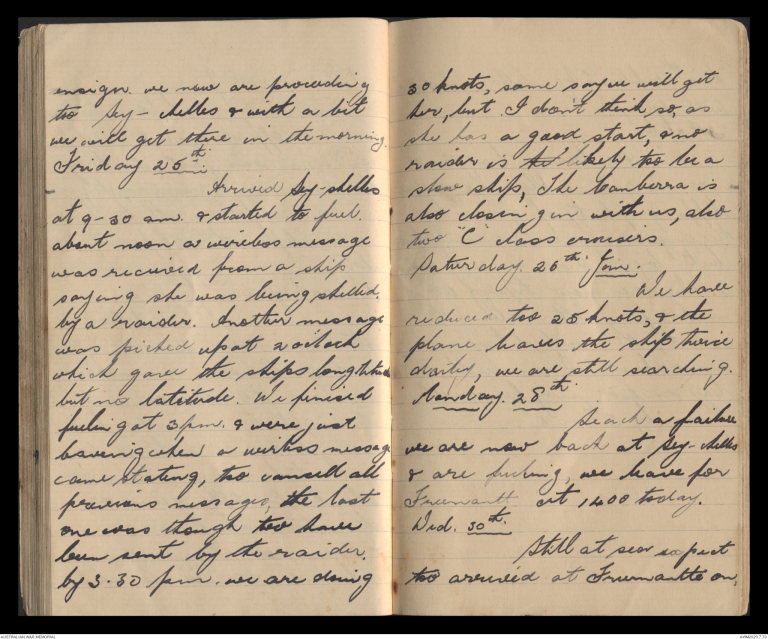 ensign. we now are proceeding
too Sey-chelles & with a bit
we will get there in the morning.
Friday 25th.
Arrived Sey-shelles
at 9-30 am. & started to fuel.
about noon a wireless message
was received from a ship
saying she was being shelled,
by a raider. Another message
was picked up at 2 oclock
which gave the ships longtitude
but no latitude. We finised
fueling at 3 pm. & were just
leaving when a wirless message
came stating, too cancell all
previous messages, the last
one was though too have
been sent by the raider,
by 3-30 pm. we are doing
30 knots, some say we will get
her, but I don't think so, as
she has a good start, & no
raider is likely too be a
slow ship, The Canberra is
also closin'g in with us, also
two "C" class cruisers.
Saturday. 26th Jan.
We have
reduced too 25 knots, & the
plane leaves the ship twice
daily, we are still searching.
Monday. 28th
Seach a failure
we are now back at Sey-chelles
& are fueling, we leave for
Freemantt at 1400 today.
Wed. 30th.
Still at sea expect
too arrived at Freemantte on,
AUSTRALIAN WAR MEMORIAL